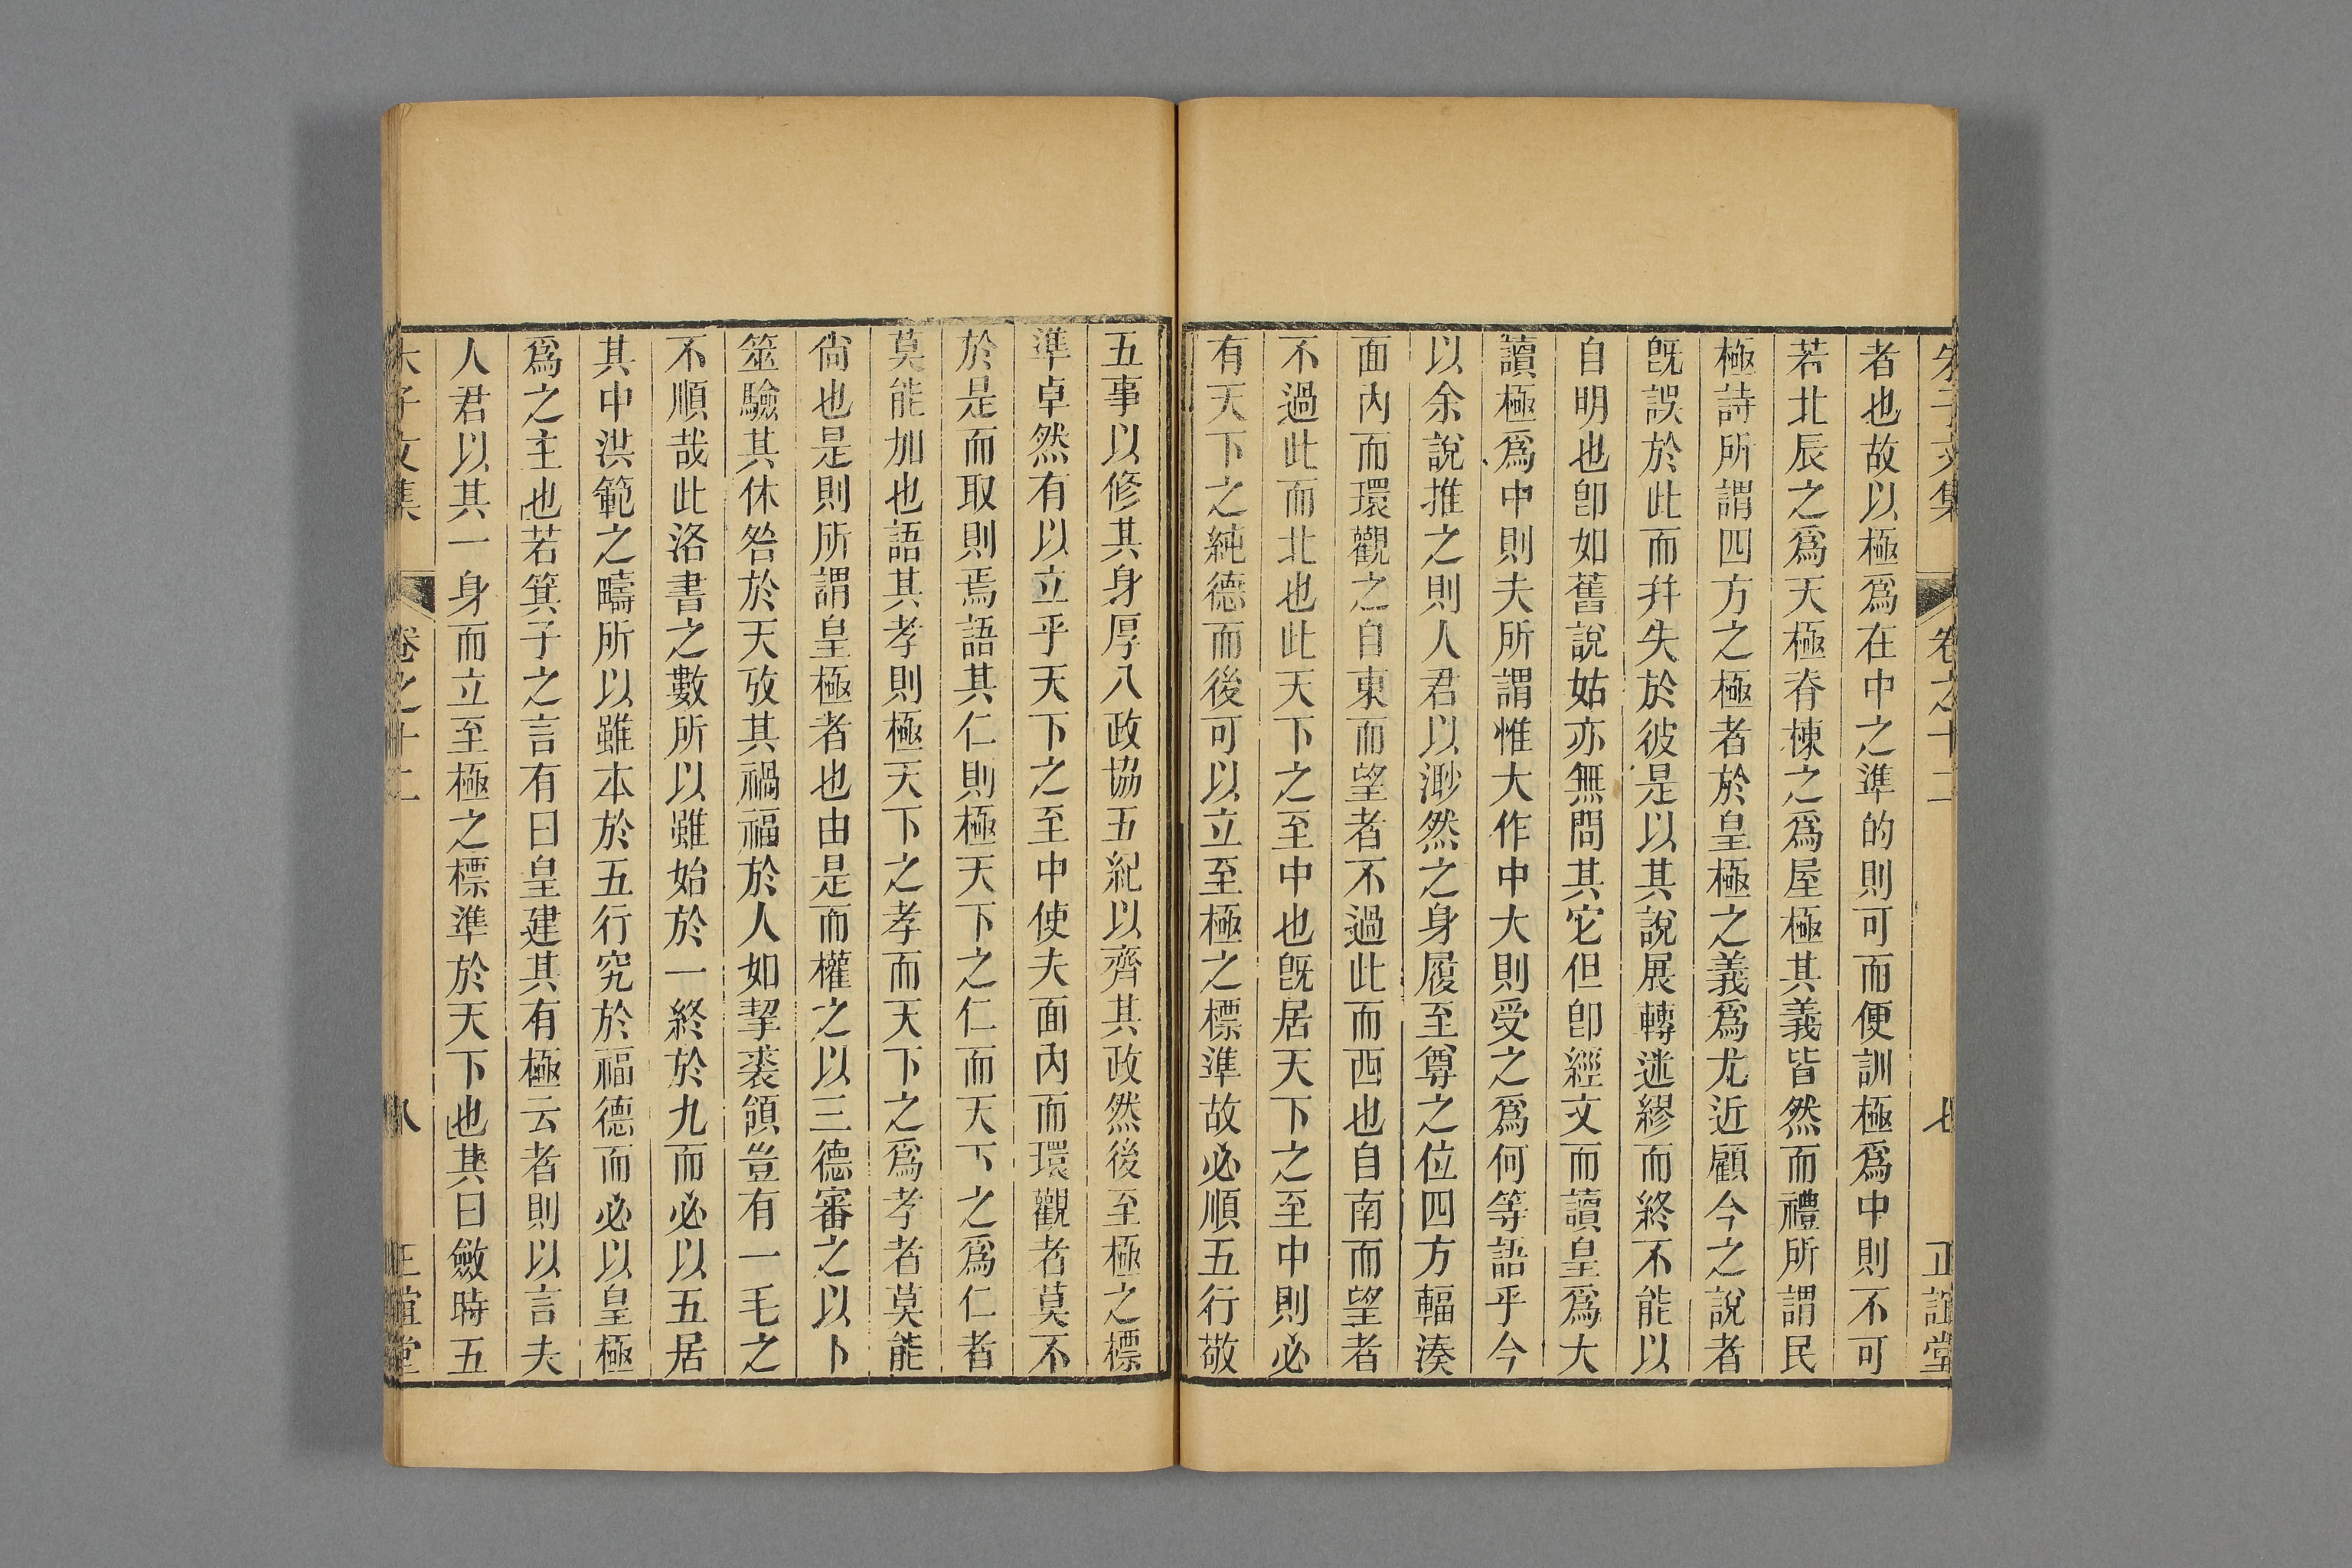 朱子文集 卷之十二 七 正誼堂
者也故以極爲在中之準的則可而便訓極爲中則不可
若北辰之爲天極脊棟之爲屋極其義皆然而禮所謂民
極詩所謂四方之極者於皇極之義爲尤近顧今之說者
旣誤於此而幷失於彼是以其說展轉迷繆而終不能以
自明也卽如舊說姑亦無問其它但卽經文而讀皇爲大
讀極爲中則夫所謂惟大作中大則受之爲何等語乎今
以余說推之則人君以渺然之身履至尊之位四方輻湊
面內而環觀之自東而望者不過此而西也自南而望者
不過此而北也此天下之至中也旣居天下之至中則必
有天下之純德而後可以立至極之標準故必順五行敬
五事以修其身厚八政協五紀以齊其政然後至極之標
準卓然有以立乎天下之至中使夫面內而環觀者莫不
於是而取則焉語其仁則極天下之仁而天下之爲仁者
莫能加也語其孝則極天下之孝而天下之爲孝者莫能
尙也是則所謂皇極者也由是而權之以三德審之以卜
筮驗其休咎於天攷其禍福於人如挈裘領豈有一毛之
不順哉此洛書之數所以雖始於一終於九而必以五居
其中洪範之疇所以雖本於五行究於福德而必以皇極
爲之主也若箕子之言有曰皇建其有極云者則以言夫
人君以其一身而立至極之標準於天下也其曰斂時五
朱子文集 卷之十二 八 正誼堂